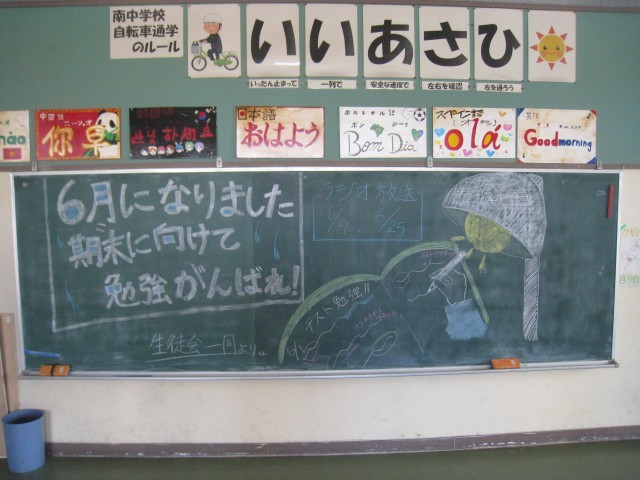 南中学校
自転車通学
のルール
いいあさひ
いったん止まって
一列で
安全な速度で
左右を確認
左を通ろう
中国語
ニーツァオ
你早
日本語
おはよう
ポルトガル語
ボン ジーア
Bom Dia
スペイン語
olá
英語
Good morning
6月になりました
期末に向けて
勉強がんばれ!
生徒会一同より
ラジオ放送
6/25
テスト勉強!!